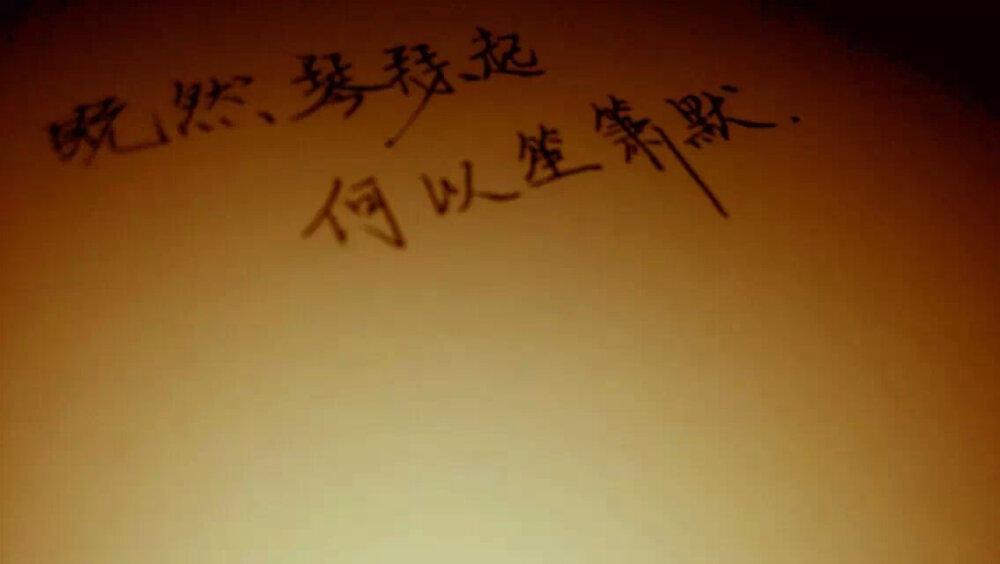 既然琴瑟起
何以笙箫默.